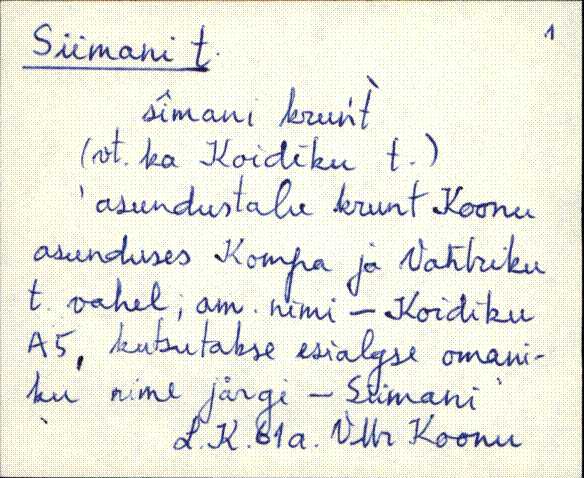 Siimani t. 1
sîmani kruńt̀
(vt. ka Koidiku t.)
'asundustalu krunt Koonu
asunduses Kompa ja Vahtriku
t. vahel; am. nimi – Koidiku
A5, kutsutakse esialgse omani-
ku nime järgi – Siimani'
L.K. 61a. VMr Koonu